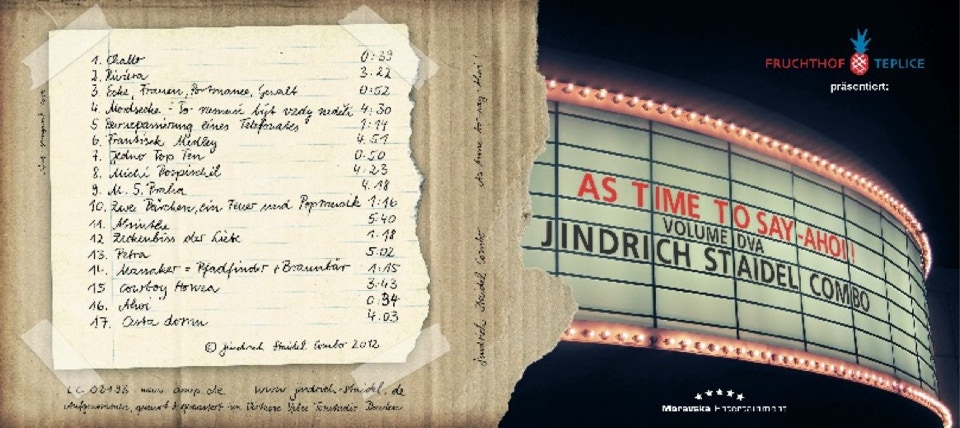 1. Challo 0:39
2. Riviera 3:22
3. Ecke, Frauen, Performance, Gewalt 0:52
4. Mordsecke - To nemusi být vzdy neděli 4:30
5. Reinkarnierung eines Telefonates 1:19
6. Frantisek Medley 4:51
7. Jedno Top Ten 0:50
8. Michi Pospischil 4:23
9. M. S. Praha 4.18
10. Zwei Pärchen, ein Feuer und Popmusik 1:16
11. Absinthe 5:40
12 Zeckenbiss der Liebe 1:18
13. Petra 5:02
14. Manaker = Pfadfinder + Braunbär 1:15
15 Cowboy Honza 3:43
16. Ahoi 0:34
17. Cesta domu 4.03
© Jindrich Staidel Combo 2012
LC 02493 www. .de www.jindrich-staidel.de
Jindrich Staidel Combo As time to say-Ahoi!
FRUCHTHOF TEPLICE
präsentiert:
AS TIME TO SAY-AHOI!
VOLUME DVA
JINDRICH STAIDEL COMBO
Moravska Entertainment